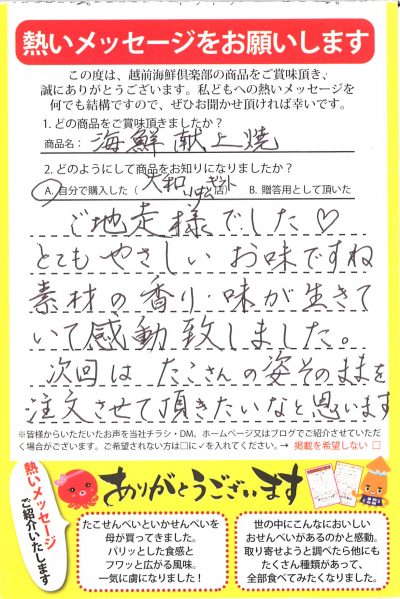 熱いメッセージをお願いします
この度は、越前海鮮倶楽部の商品をご賞味頂き、
誠にありがとうございます。私どもへの熱いメッセージを
何でも結構ですので、ぜひお聞かせ頂ければ幸いです。
1. どの商品をご賞味頂きましたか?
商品名: 海鮮献上焼
2. どのようにして商品をお知りになりましたか?
A. 自分で購入した ( 大和 ギフト 店) B. 贈答用として頂いた
ご地走様でした♡
とてもやさしい お味ですね
素材の香り・味が生きて
いて感動致しました。
次回は たこさんの姿そのままを
注文させて頂きたいなと思います
※皆様からいただいたお声を当社チラシ・DM、ホームページ又はブログでご紹介させていただ
く場合がございます。ご希望されない方は□に✓を入れてください。→ 掲載を希望しない □
熱いメッセージ
ご紹介いたします
ありがとうございます
たこせんべいといかせんべいを
母が買ってきました。
パリッとした食感と
フワッと広がる風味。
一気に虜になりました!
世の中にこんなにおいしい
おせんべいがあるのかと感動。
取り寄せようと調べたら他にも
たくさん種類があって、
全部食べてみたくなりました。